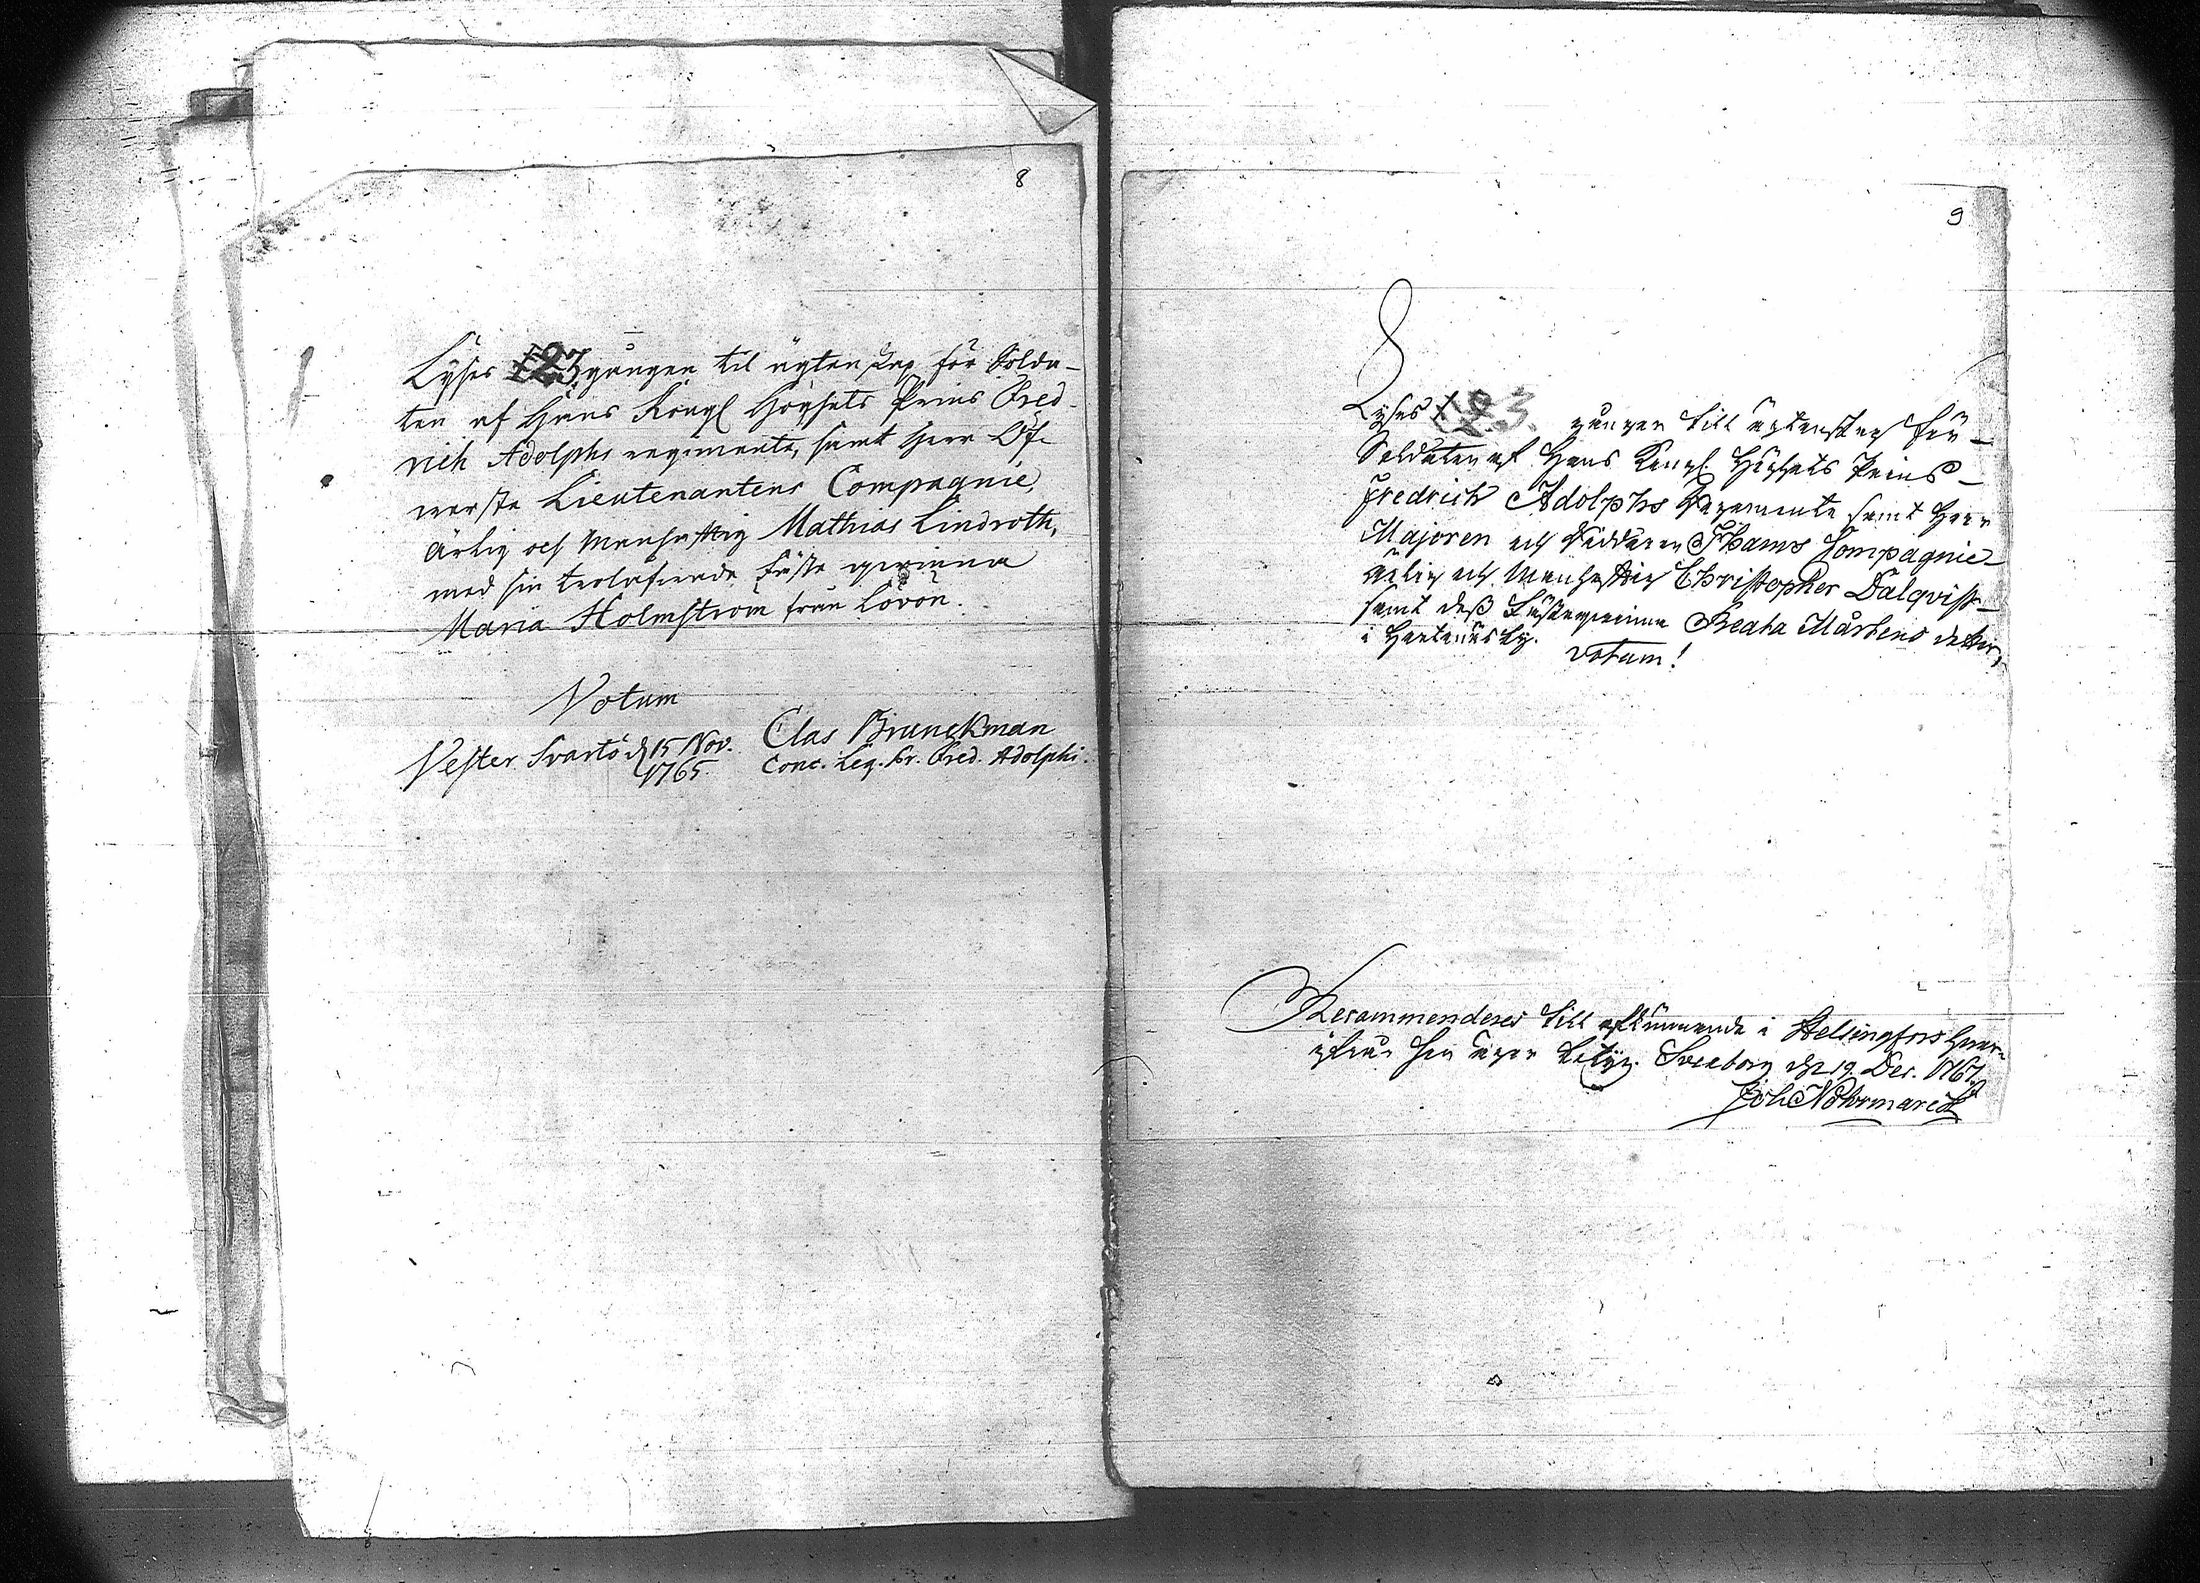 8
Lyses 1 2 3 gången til ägtenskap för Solda-
ten af Hans Kongl Höghets Prins Fred-
rich Adolphs regimente, samt Herr Öf-
werste Lieutenantens Compagnie,
ärlig och Manhaftig Mathias Lindroth,
med sin trolofwade Fäste qwinna
Maria Holmström från Löfön.
Votum
Vester Svartö d 15 Nov.
1765.
Clas Brunckman
Conc. Leg. Pr. Fred. Adolphi.
9
Lyses 1 2 3. gången till ägtenskap för
Soldaten af Hans Kongl. Höghets Prins
Fredrich Adolphs Regemente samt Herr
Majoren och Riddaren Thams Compagnie
ärlig och Manhaftig Christopher Dalqvist
samt dess Fästeqwinna Beata Mårtens dotter,
i by.
Votum!
Recommenderes till afkunnande i Helsingfors
Sveaborg d 19. Dec. 1767.
Joh Nohrmarck